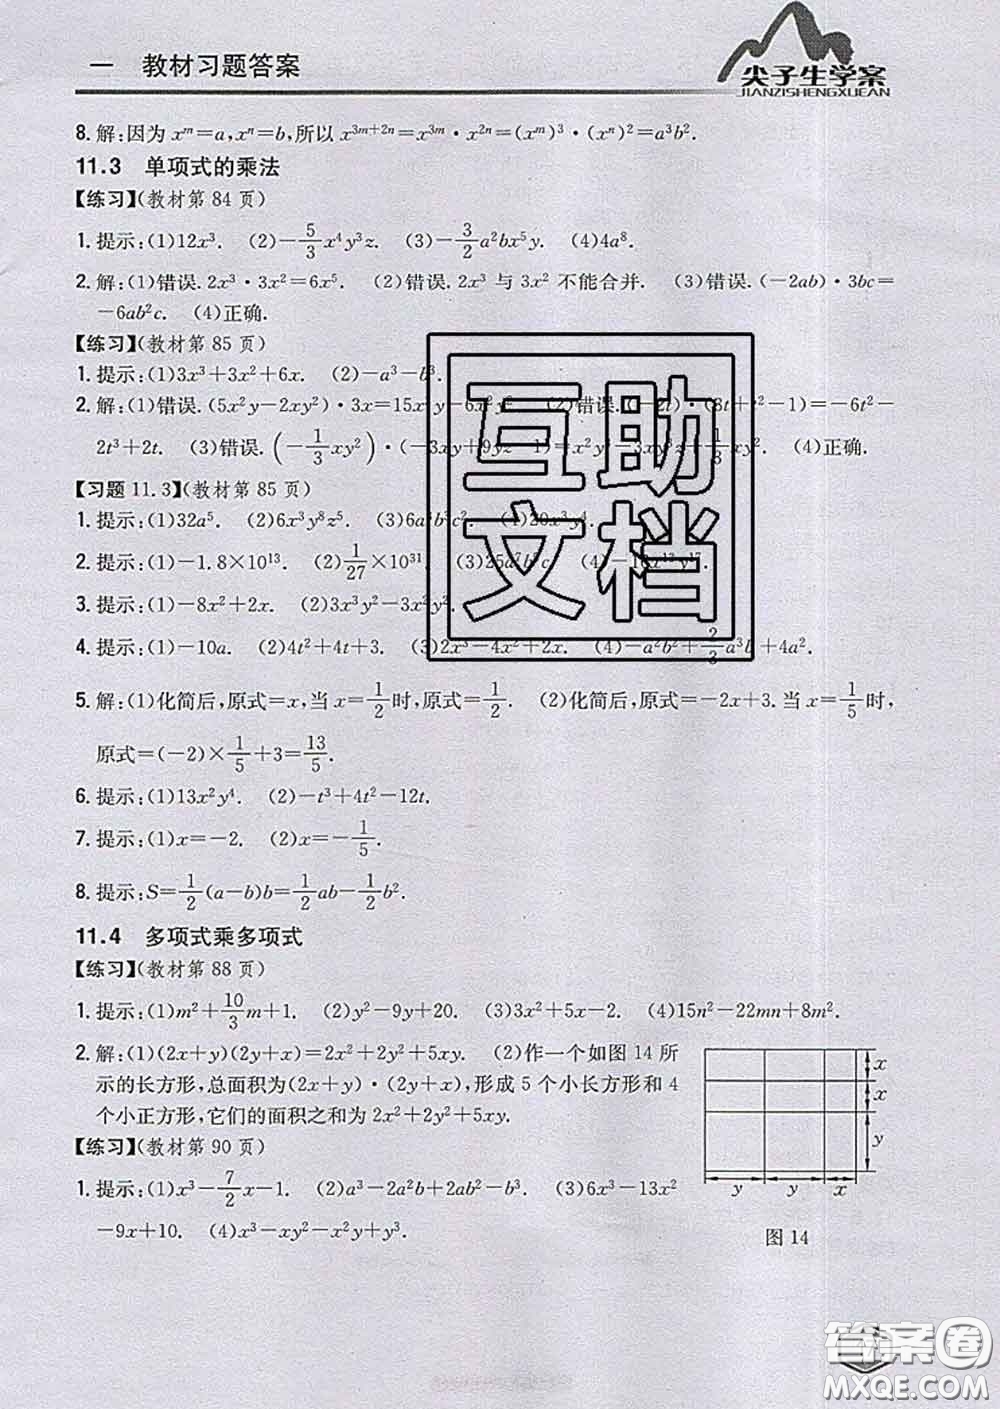 一 教材习题答案
尖子生学案
JIANZISHENGXUEAN
8.解:因为 xᵐ=a,xⁿ=b,所以 x³ᵐ⁺²ⁿ=x³ᵐ·x²ⁿ=(xᵐ)³·(xⁿ)²=a³b².
11.3 单项式的乘法
【练习】(教材第 84 页)
1.提示:(1)12x³. (2)-5/3x⁴y³z. (3)-3/2a²bx⁵y. (4)4a⁸.
2.解:(1)错误.2x³·3x²=6x⁵. (2)错误.2x³ 与 3x² 不能合并. (3)错误.(-2ab)·3bc=
-6ab²c. (4)正确.
【练习】(教材第 85 页)
1.提示:(1)3x³+3x²+6x. (2)-a³-b³.
2.解:(1)错误.(5x²y-2xy²)·3x=15x³y-6x²y². (2)错误.(-2t)·(3t+t²-1)=-6t²-
2t³+2t. (3)错误.(-1/3xy²)·(-3xy+9yz-1)= (4)正确.
【习题 11.3】(教材第 85 页)
1.提示:(1)32a⁵. (2)6x³y⁸z⁵. (3)6a³b³c². (4)20x³y⁴.
2.提示:(1)-1.8×10¹³. (2)1/27×10³¹. (3)25a⁷b²c. (4)
3.提示:(1)-8x²+2x. (2)3x³y²-3x²y².
4.提示:(1)-10a. (2)4t²+4t+3. (3)2x³-4x²+2x. (4)-a²b²+2/3a³b+4a².
5.解:(1)化简后,原式=x,当 x=1/2时,原式=1/2. (2)化简后,原式=-2x+3.当 x=1/5时,
原式=(-2)×1/5+3=13/5.
6.提示:(1)13x²y⁴. (2)-t³+4t²-12t.
7.提示:(1)x=-2. (2)x=-1/5.
8.提示:S=1/2(a-b)b=1/2ab-1/2b².
11.4 多项式乘多项式
【练习】(教材第 88 页)
1.提示:(1)m²+10/3m+1. (2)y²-9y+20. (3)3x²+5x-2. (4)15n²-22mn+8m².
2.解:(1)(2x+y)(2y+x)=2x²+2y²+5xy. (2)作一个如图 14 所
示的长方形,总面积为(2x+y)·(2y+x),形成 5 个小长方形和 4
个小正方形,它们的面积之和为 2x²+2y²+5xy.
【练习】(教材第 90 页)
1.提示:(1)x³-7/2x-1. (2)a³-2a²b+2ab²-b³. (3)6x³-13x²
-9x+10. (4)x³-xy²-x²y+y³.
x
x
y
y y x
图 14
互助
文档
答案圈
MXQE.COM